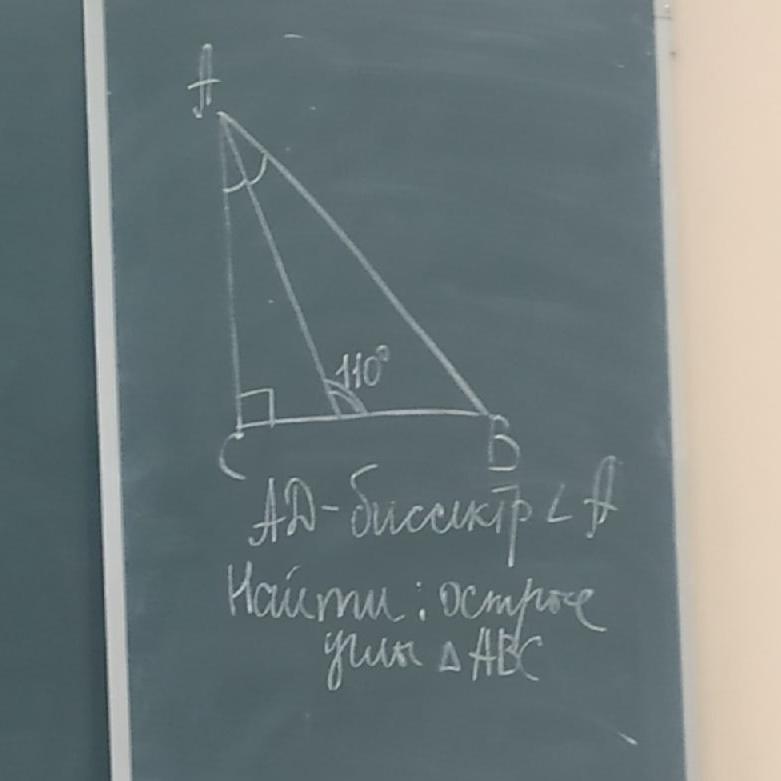 A
110°
C
B
AD-биссектр ∠ A
Найти: острые
углы △ ABC